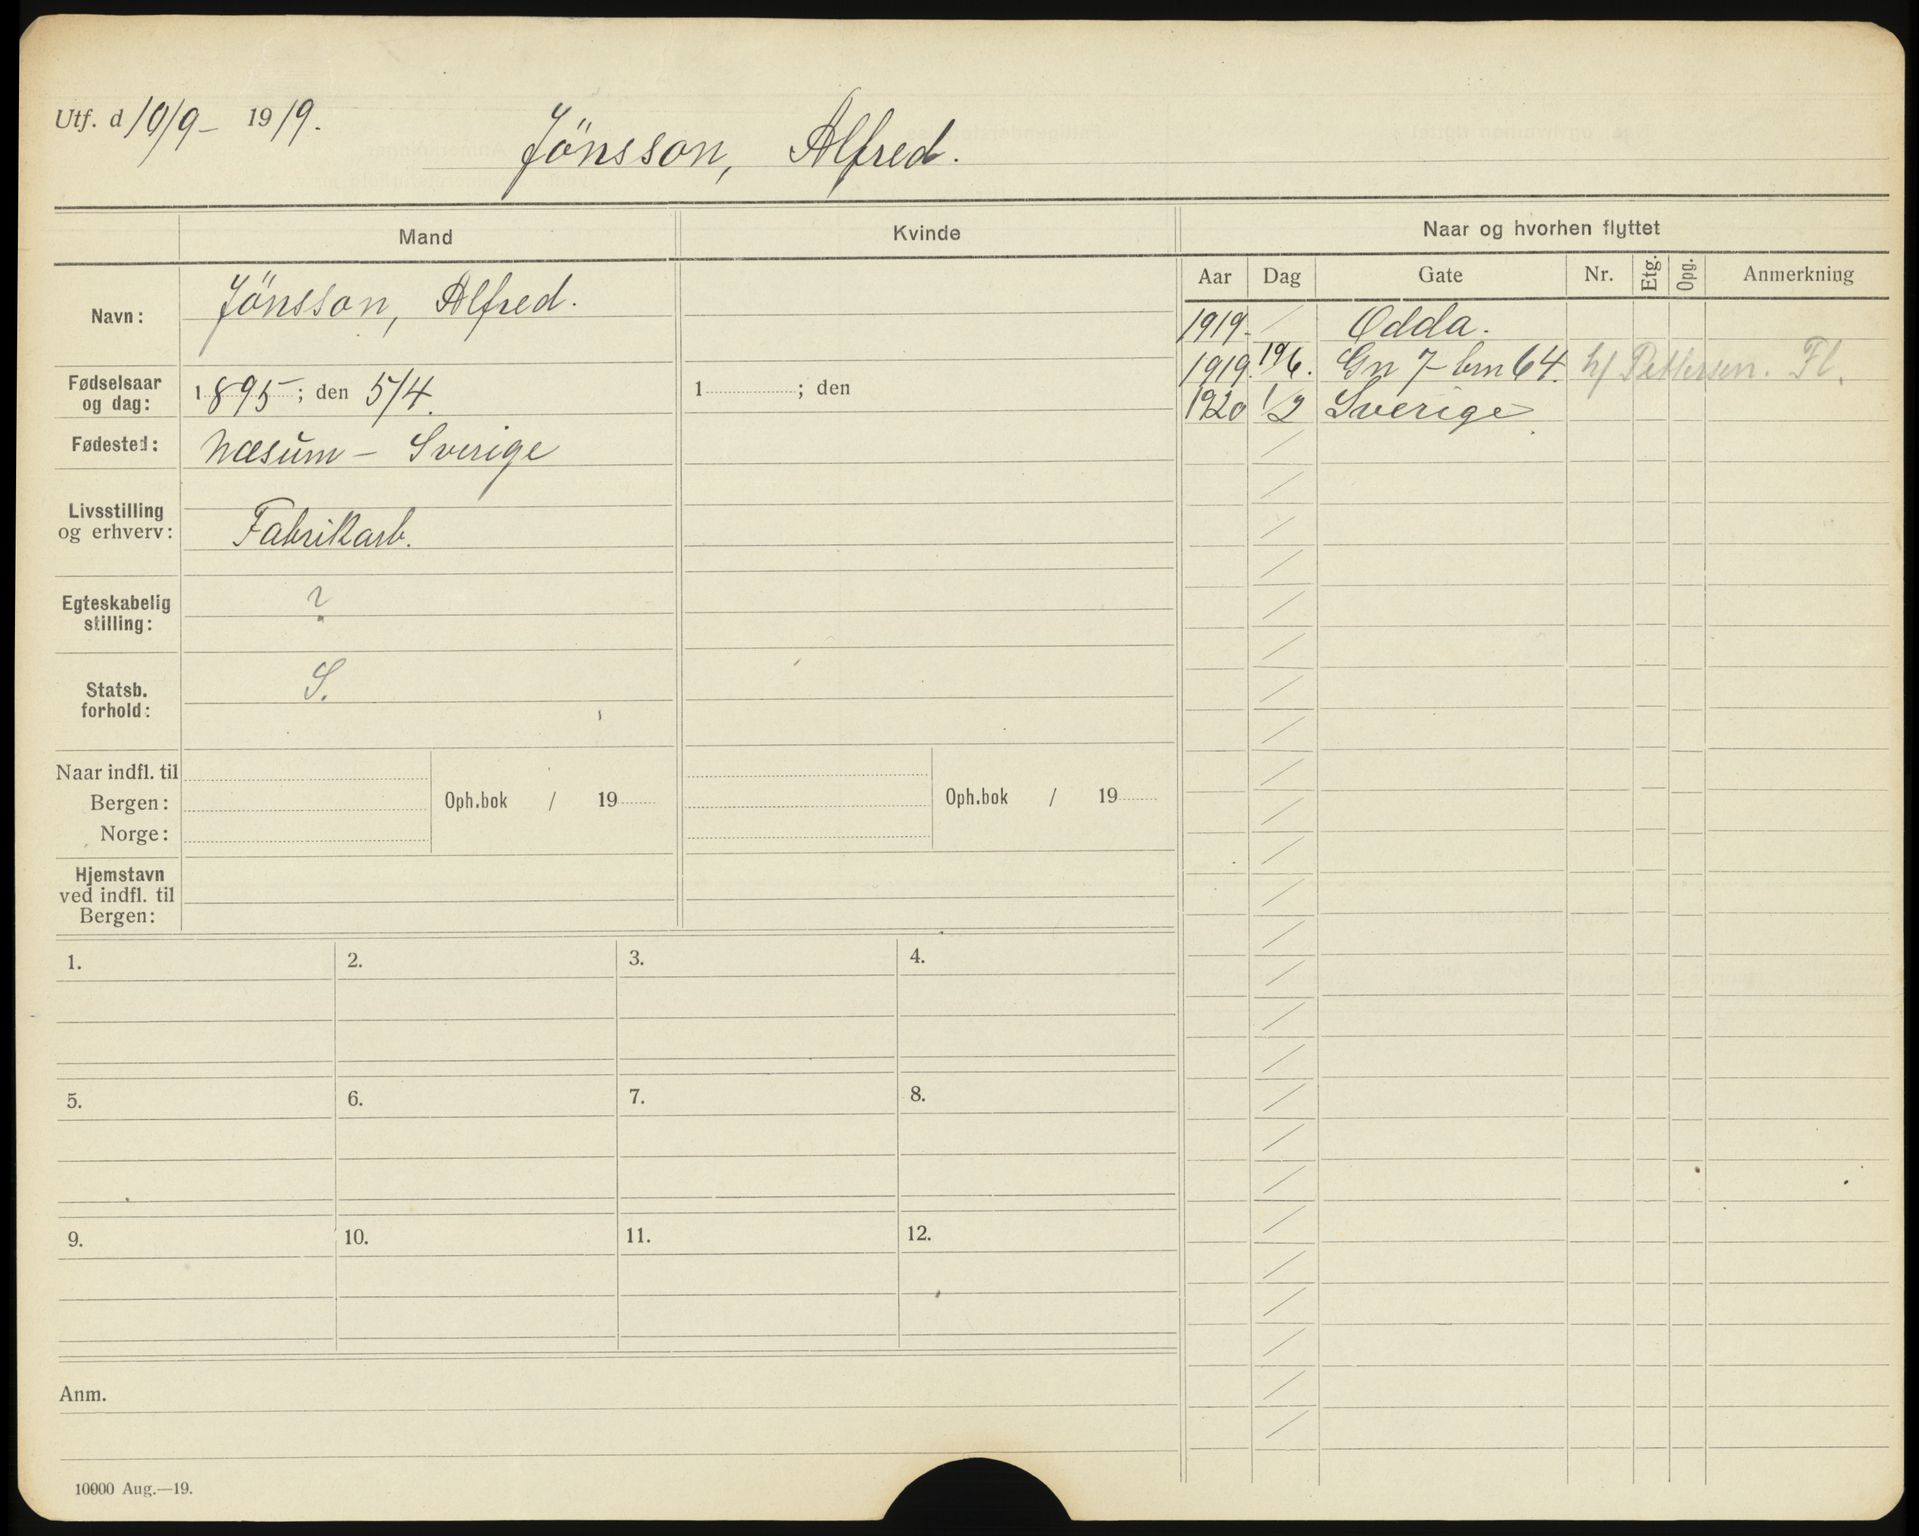 Utf. d 10/9 - 1919.
Jönsson, Alfred.
Mand
Kvinde
Naar og hvorhen flyttet
Aar Dag Gate Nr. Etg. Opg. Anmerkning
Navn: Jönsson, Alfred.
1919. / Odda.
1919. 19/6. Gn 7 - bm 64. h/ Pettersen. Fl.
1920 1/2 Sverige
Fødselsaar og dag: 1895; den 5/4.
1 ; den
Fødested: Næsum - Sverige
Livsstilling
og erhverv: Fabrikarb.
Egteskabelig
stilling: ?
Statsb.
forhold: S.
Naar indfl. til
Bergen:
Norge:
Oph.bok / 19
Oph.bok / 19
Hjemstavn
ved indfl. til
Bergen:
1. 2. 3. 4.
5. 6. 7. 8.
9. 10. 11. 12.
Anm.
10000 Aug.—19.